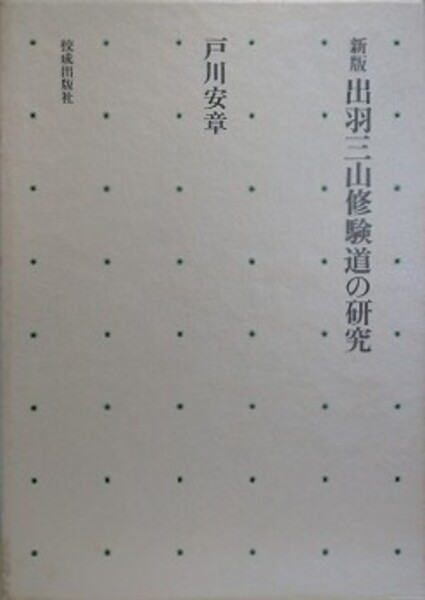 新版 出羽三山修験道の研究
戸川安章
佼成出版社